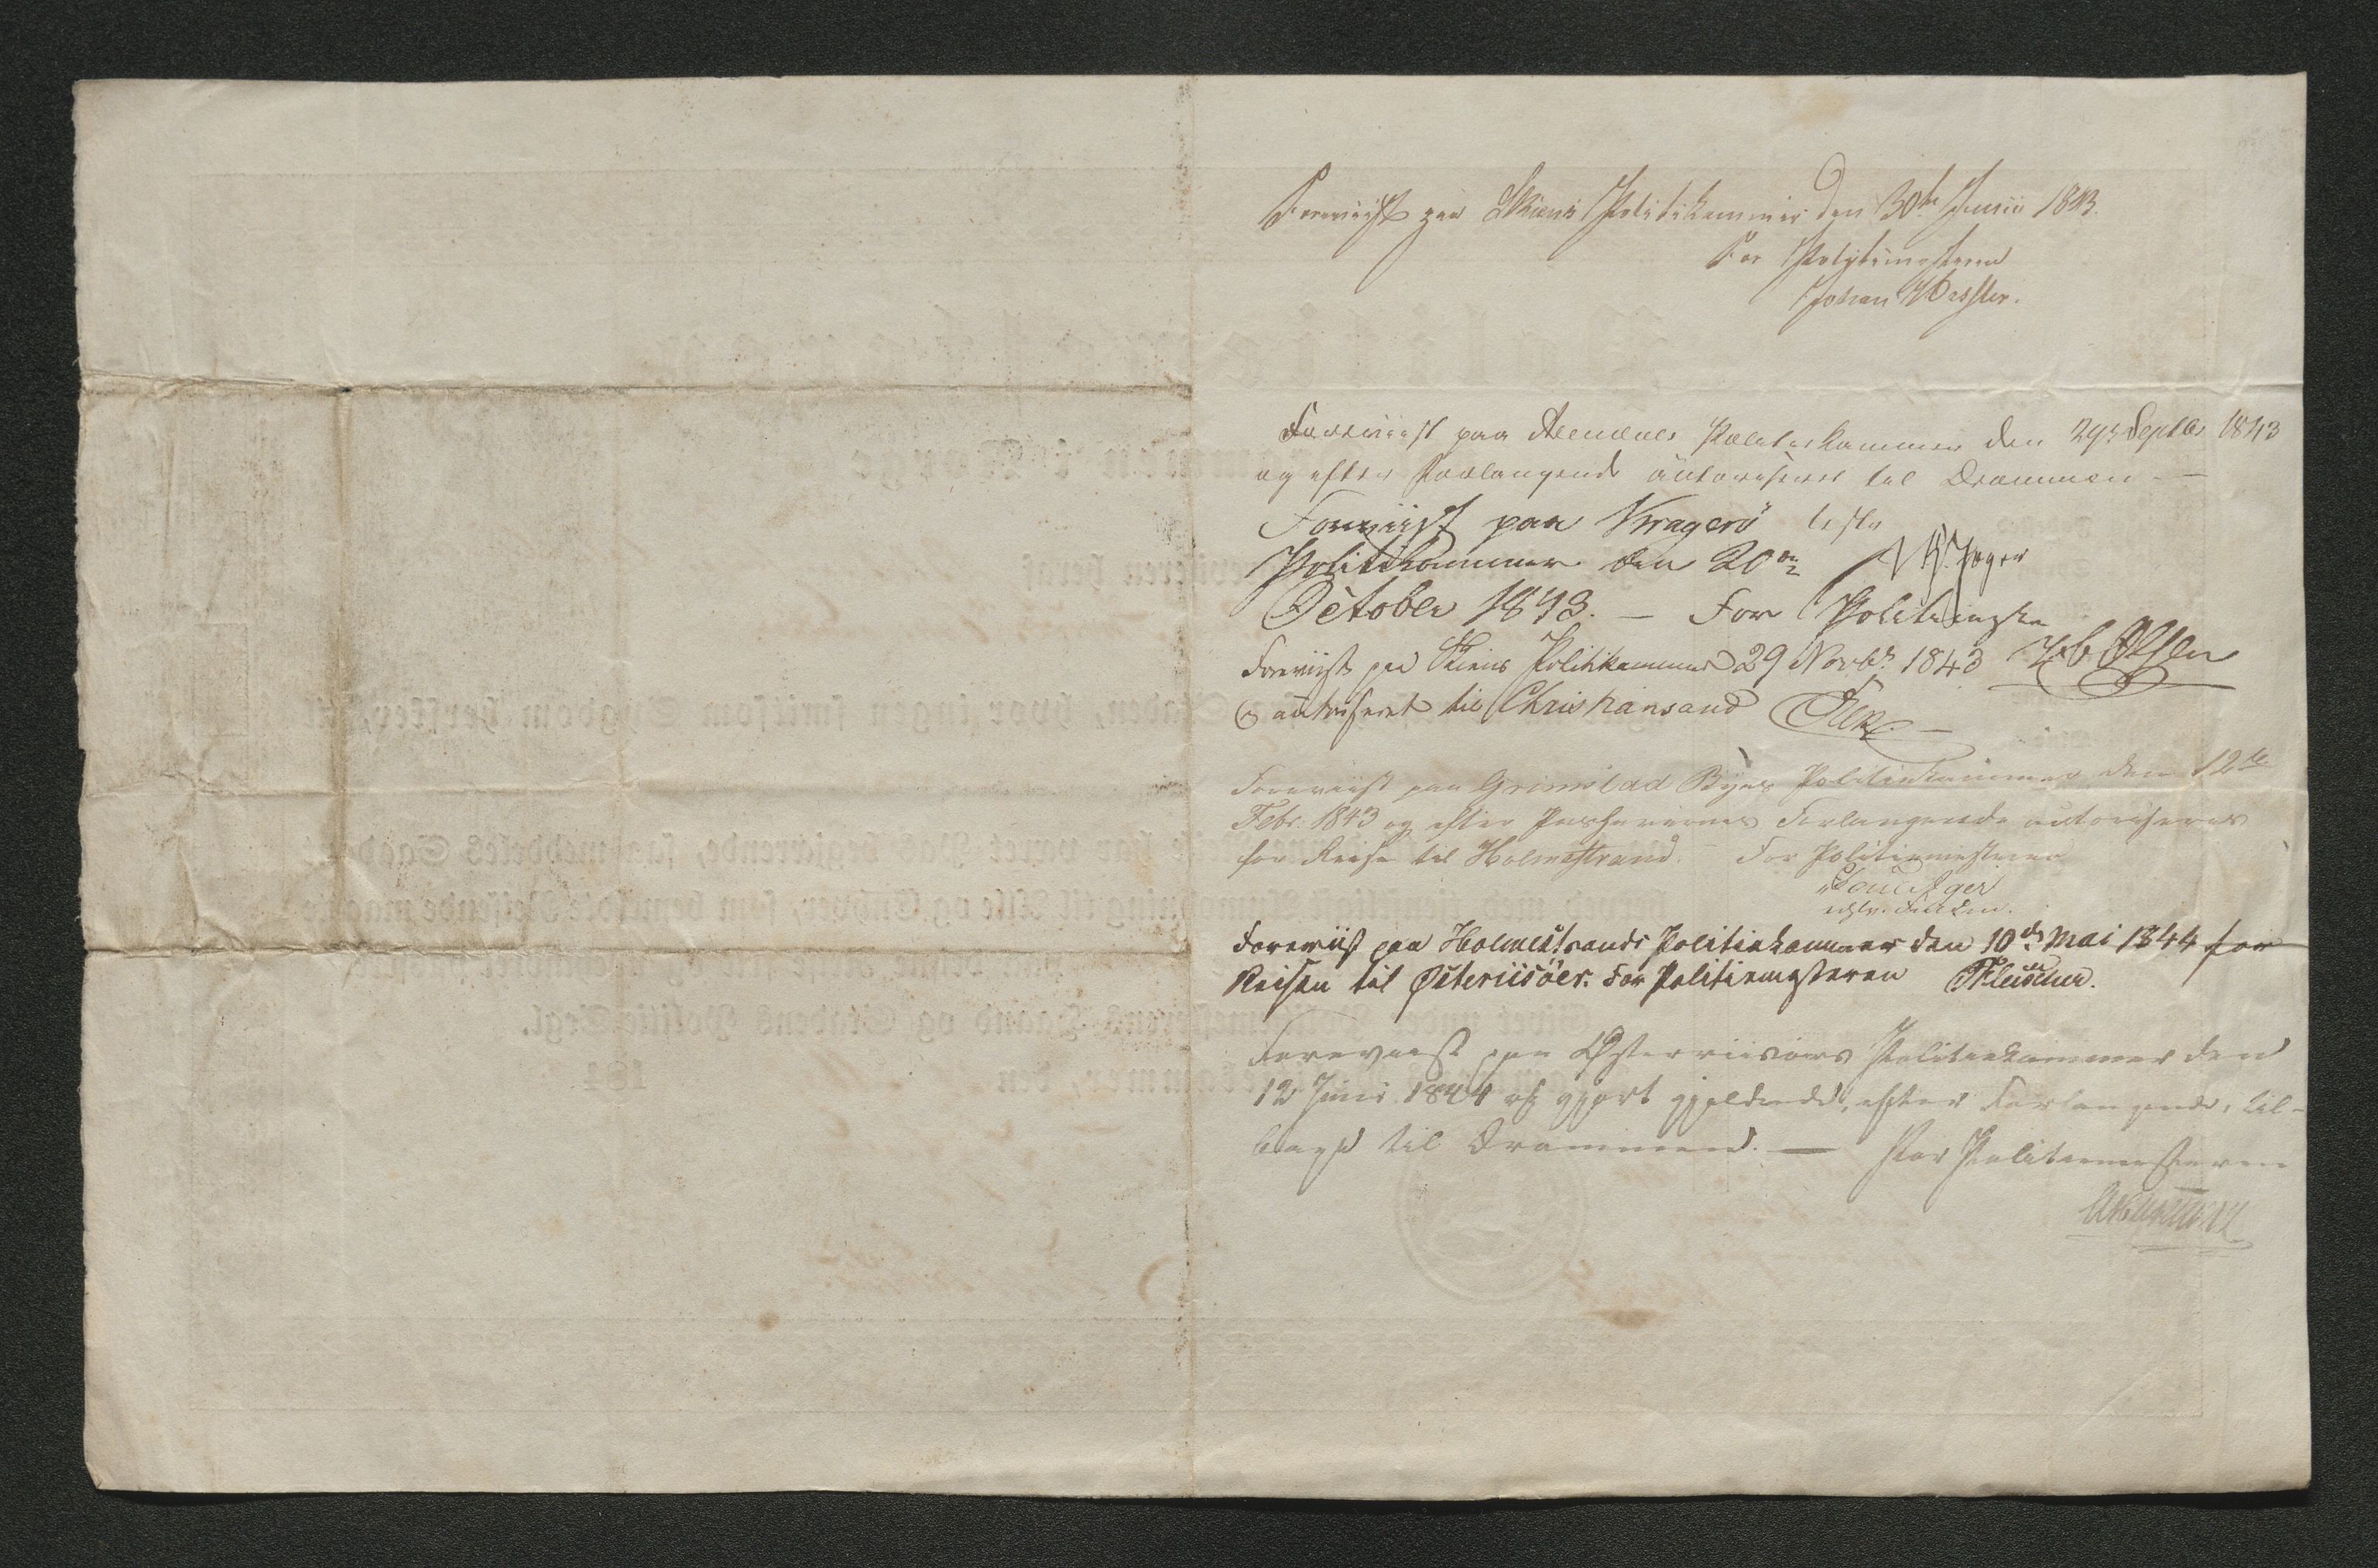 Foreviist paa Skiens Politikammer den 30te Junii 1843.
For Politimesteren
Johan Wessler.
Foreviist paa Arendals Politiekammer den 29de Septbr 1843
og efter Forlangende autoriseret til Drammen. —
Foreviist paa Kragerö
Politikammer den 20de
October 1843. — For Politimesteren
Foreviist paa Skiens Politikammer 29 Novbr. 1843 Olsen
og autoriseret til Christiansand
Foreviist paa Grimstad Byes Politiekammer den 12te
Febr. 1843 og efter Passhaverens Forlangende autoriseres
for Reise til Holmestrand. – For Politiemesteren
Foreviist paa Holmestrands Politiekammer den 10de Mai 1844 for
Reisen til Østeriisöer. For Politiemesteren Fleischer.
Foreviist paa Østerriisöers Politiekammer den
12 Juni 1844 og gjort gjeldende, efter Forlangende, til-
bage til Drammen. — For Politiemesteren